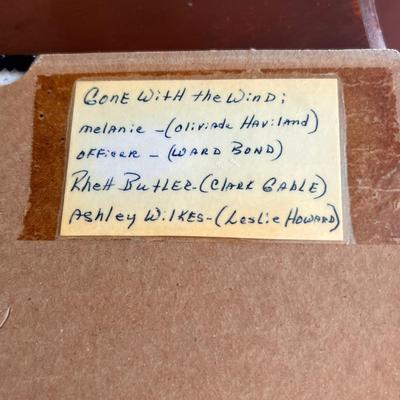 GONE WITH the WIND;
melanie - (Oliviade Haviland)
OFFICER - (WARD BOND)
Rhett BUTLER - (CLARK GABLE)
Ashley WILKES - (Leslie HOWARD)